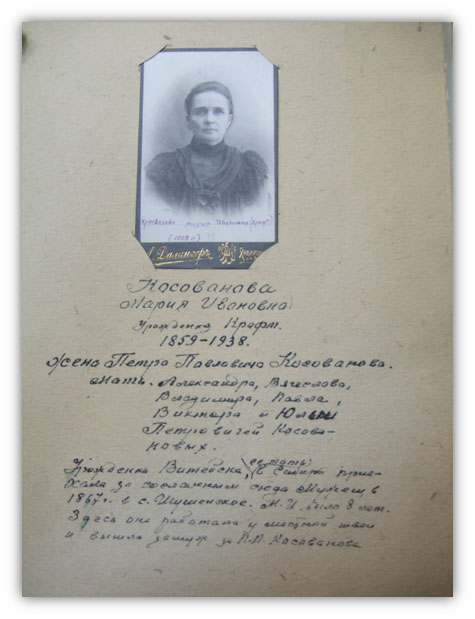 Косованова Мария Ивановна (Крафт)
(1909 г.)
А. Далингеръ
Косованова
Мария Ивановна
Урожденка Крафт.
1859-1938.
Жена Петра Павловича Косованова.
Мать. Александра, Вячеслова,
Владимира, Павла,
Виктора и Юлии
Петровичей Косова-
новых.
Урожденка Витебска, (ее мать) в Сибирь прие-
хала за сосланным сюда мужем в
1867 г. в с. Шушенское. М.И. было 8 лет.
Здесь она работала у местной швеи
и вышла замуж за П.П. Косованова